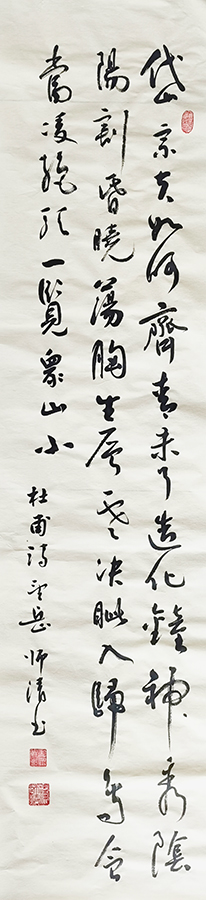 岱宗夫如何齊青未了造化鍾神秀陰
陽割昏曉蕩胸生層雲決眦入歸鳥會
當凌絕頂一覽衆山小
杜甫詩望岳 師清書